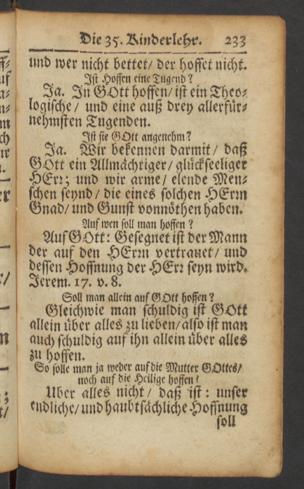 Die 35. Kinderlehr. 233
und wer nicht bettet/ der hoffet nicht.
Ist Hoffen eine Tugend?
Ja. In GOtt hoffen/ ist ein Theo-
logische/ und eine auß drey allerfür-
nehmsten Tugenden.
Ist sie GOtt angenehm?
Ja. Wir bekennen darmit/ daß
GOtt ein Allmächtiger/ glückseeliger
HErr; und wir arme/ elende Men-
schen seynd/ die eines solchen HErrn
Gnad/ und Gunst vonnöthen haben.
Auf wen soll man hoffen?
Auf GOtt: Gesegnet ist der Mann
der auf den HErrn vertrauet/ und
dessen Hoffnung der HErr seyn wird.
Jerem. 17. v. 8.
Soll man allein auf GOtt hoffen?
Gleichwie man schuldig ist GOtt
allein über alles zu lieben/ also ist man
auch schuldig auf ihn allein über alles
zu hoffen.
So solle man ja weder auf die Mutter GOttes/
noch auf die Heilige hoffen?
Uber alles nicht/ daß ist: unser
endliche/ und haubtsächliche Hoffnung
soll